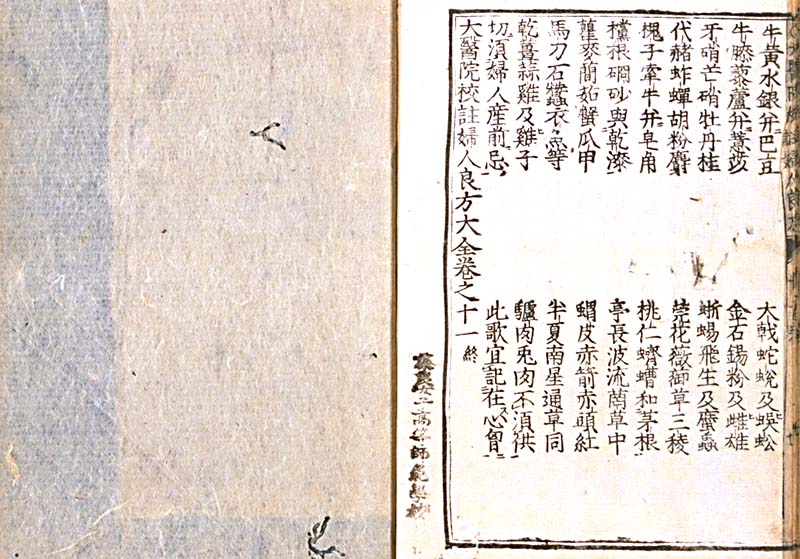 牛黄水銀并巴豆　大戟蛇蛻及蜈蚣
牛膝藜蘆并薏苡　金石錫粉及雌雄
牙硝芒硝牡丹桂　蜥蜴飛生及䗪蟲
代赭蚱蟬胡粉麝　芫花薇御草三稜
槐子牽牛并皂角　桃仁蠐螬和茅根
欓根硇砂與乾漆　亭長波流茵草中
瞿麥䕡茹蟹瓜甲　蝟皮赤箭赤頭紅
馬刀石蠶衣魚等　半夏南星通草同
乾薑蒜雞及雞子　驢肉兎肉不湏供
切湏婦人産前忌　此歌宜記在心曾
大醫院校註婦人良方大全卷之十一終
高等師範學校